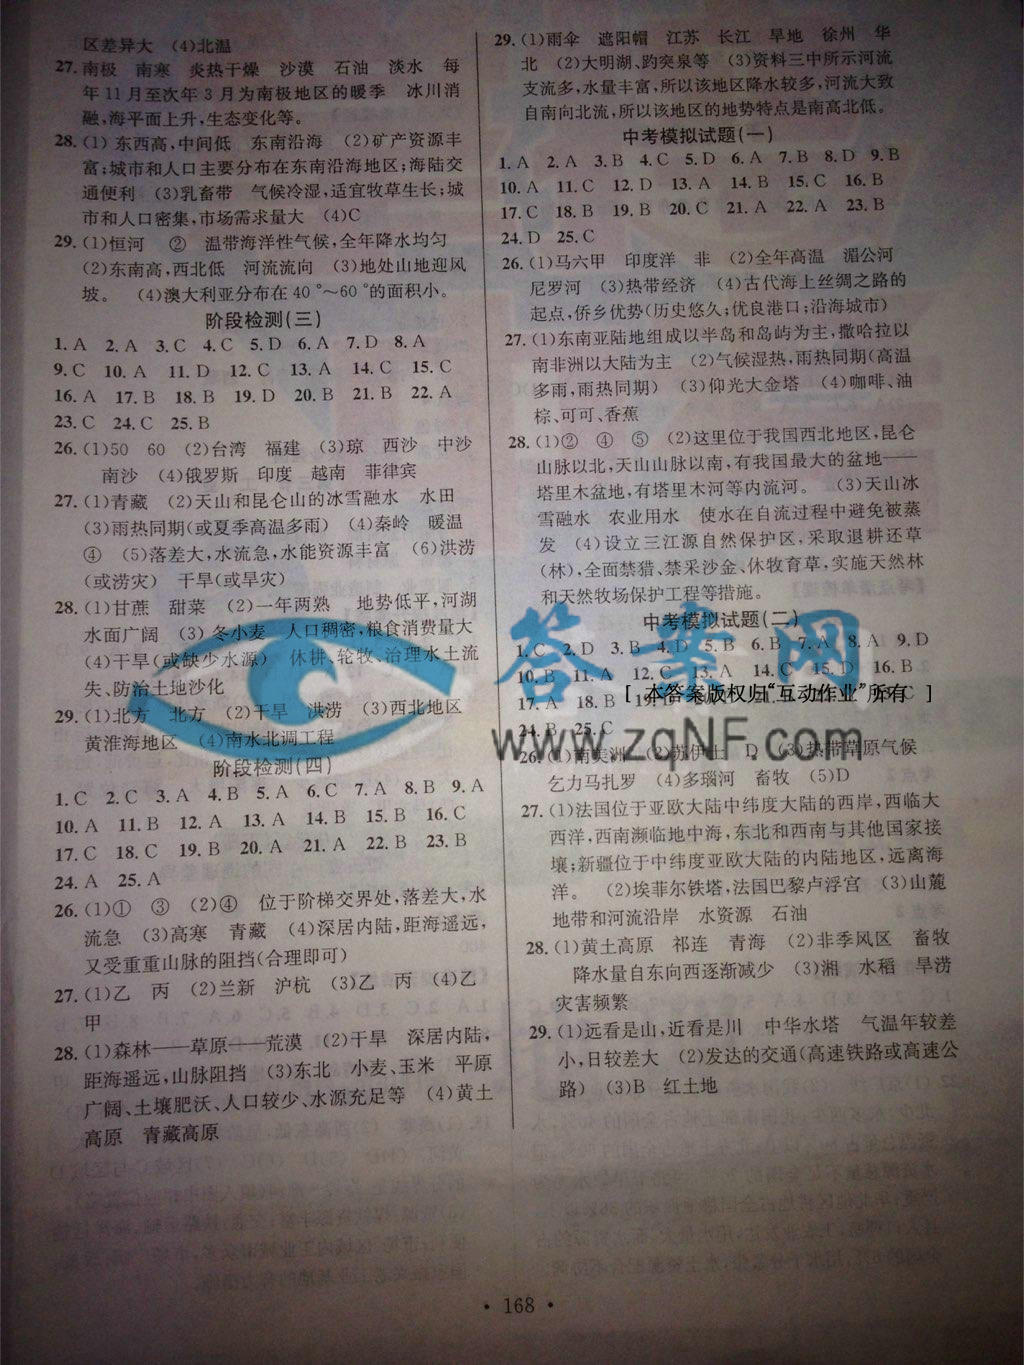 区差异大 (4)北温
27. 南极 南寒 炎热干燥 沙漠 石油 淡水 每
年11月至次年3月为南极地区的暖季 冰川消
融,海平面上升,生态变化等。
28. (1)东西高,中间低 东南沿海 (2)矿产资源丰
富;城市和人口主要分布在东南沿海地区;海陆交
通便利 (3)乳畜带 气候冷湿,适宜牧草生长;城
市和人口密集,市场需求量大 (4)C
29. (1)恒河 ② 温带海洋性气候,全年降水均匀
(2)东南高,西北低 河流流向 (3)地处山地迎风
坡。 (4)澳大利亚分布在40°～60°的面积小。
阶段检测(三)
1. A 2. A 3. C 4. C 5. D 6. A 7. D 8. A
9. C 10. A 11. D 12. C 13. A 14. C 15. C
16. A 17. B 18. B 19. D 20. B 21. B 22. A
23. C 24. C 25. B
26. (1)50 60 (2)台湾 福建 (3)琼 西沙 中沙
南沙 (4)俄罗斯 印度 越南 菲律宾
27. (1)青藏 (2)天山和昆仑山的冰雪融水 水田
(3)雨热同期(或夏季高温多雨) (4)秦岭 暖温
④ (5)落差大,水流急,水能资源丰富 (6)洪涝
(或涝灾) 干旱(或旱灾)
28. (1)甘蔗 甜菜 (2)一年两熟 地势低平,河湖
水面广阔 (3)冬小麦 人口稠密,粮食消费量大
(4)干旱(或缺少水源) 休耕、轮牧、治理水土流
失、防治土地沙化
29. (1)北方 北方 (2)干旱 洪涝 (3)西北地区
黄淮海地区 (4)南水北调工程
阶段检测(四)
1. C 2. C 3. A 4. B 5. A 6. C 7. A 8. B 9. A
10. A 11. B 12. A 13. A 14. B 15. B 16. C
17. C 18. C 19. B 20. A 21. A 22. B 23. B
24. A 25. A
26. (1)① ③ (2)④ 位于阶梯交界处,落差大,水
流急 (3)高寒 青藏 (4)深居内陆,距海遥远,
又受重重山脉的阻挡(合理即可)
27. (1)乙 丙 (2)兰新 沪杭 (3)乙 丙 (4)乙
甲
28. (1)森林——草原——荒漠 (2)干旱 深居内陆,
距海遥远,山脉阻挡 (3)东北 小麦、玉米 平原
广阔、土壤肥沃、人口较少、水源充足等 (4)黄土
高原 青藏高原
29. (1)雨伞 遮阳帽 江苏 长江 旱地 徐州 华
北 (2)大明湖、趵突泉等 (3)资料三中所示河流
支流多,水量丰富,所以该地区降水较多,河流大致
自南向北流,所以该地区的地势特点是南高北低。
中考模拟试题(一)
1. A 2. A 3. B 4. C 5. D 6. A 7. B 8. D 9. B
10. A 11. C 12. D 13. A 14. B 15. C 16. B
17. C 18. B 19. B 20. C 21. A 22. A 23. B
24. D 25. C
26. (1)马六甲 印度洋 非 (2)全年高温 湄公河
尼罗河 (3)热带经济 (4)古代海上丝绸之路的
起点,侨乡优势(历史悠久;优良港口;沿海城市)
27. (1)东南亚陆地组成以半岛和岛屿为主,撒哈拉以
南非洲以大陆为主 (2)气候湿热,雨热同期(高温
多雨,雨热同期) (3)仰光大金塔 (4)咖啡、油
棕、可可、香蕉
28. (1)② ④ ⑤ (2)这里位于我国西北地区,昆仑
山脉以北,天山山脉以南,有我国最大的盆地——
塔里木盆地,有塔里木河等内流河。 (3)天山冰
雪融水 农业用水 使水在自流过程中避免被蒸
发 (4)设立三江源自然保护区,采取退耕还草
(林),全面禁猎、禁采沙金、休牧育草,实施天然林
和天然牧场保护工程等措施。
中考模拟试题(二)
1. C 2. D 3. B 4. D 5. B 6. B 7. A 8. A 9. D
10. B 11. A 12. C 13. A 14. C 15. D 16. B
17. A 18. B 19. D
24. B 25. C
26. (1)南美洲 (2)苏伊士 D (3)热带草原气候
乞力马扎罗 (4)多瑙河 畜牧 (5)D
27. (1)法国位于亚欧大陆中纬度大陆的西岸,西临大
西洋,西南濒临地中海,东北和西南与其他国家接
壤;新疆位于中纬度亚欧大陆的内陆地区,远离海
洋。 (2)埃菲尔铁塔,法国巴黎卢浮宫 (3)山麓
地带和河流沿岸 水资源 石油
28. (1)黄土高原 祁连 青海 (2)非季风区 畜牧
降水量自东向西逐渐减少 (3)湘 水稻 旱涝
灾害频繁
29. (1)远看是山,近看是川 中华水塔 气温年较差
小,日较差大 (2)发达的交通(高速铁路或高速公
路) (3)B 红土地
答案网
[ 本答案版权归"互动作业"所有 ]
www.zqNF.com
· 168 ·